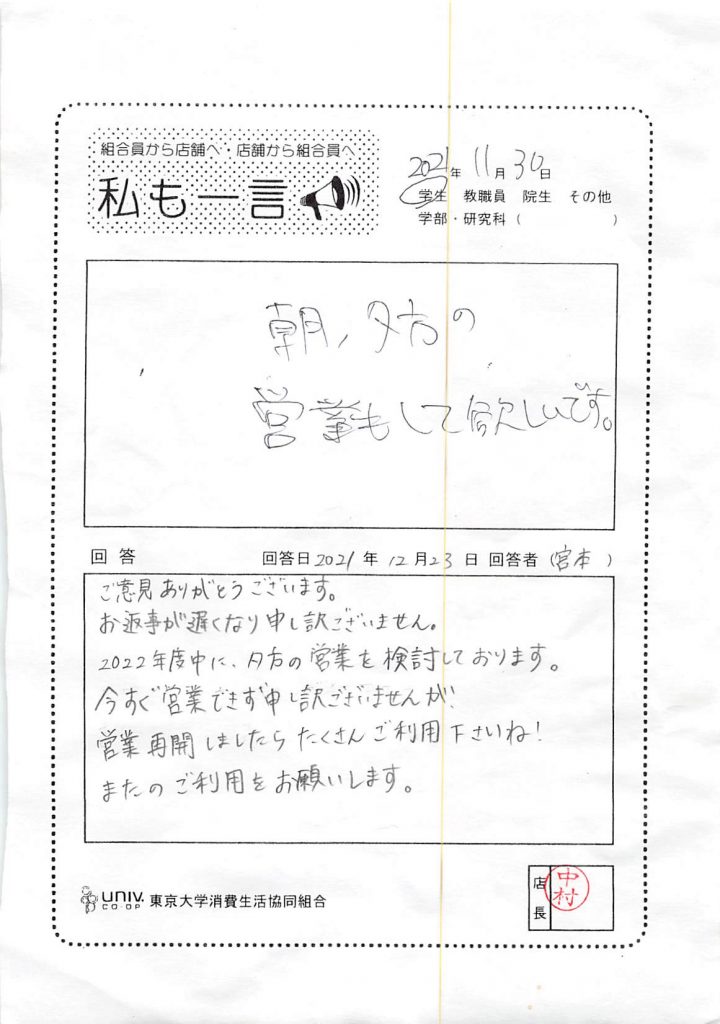 組合員から店舗へ・店舗から組合員へ
私も一言
2021年 11月 30日
学生 教職員 院生 その他
学部・研究科( )
朝、夕方の
営業もして欲しいです。
回答 回答日2021年12月23日 回答者(宮本)
ご意見ありがとうございます。
お返事が遅くなり申し訳ございません。
2022年度中に、夕方の営業を検討しております。
今すぐ営業できず申し訳ございませんが、
営業再開しましたらたくさんご利用下さいね!
またのご利用をお願いします。
UNIV.
CO-OP
東京大学消費生活協同組合
店長
中村